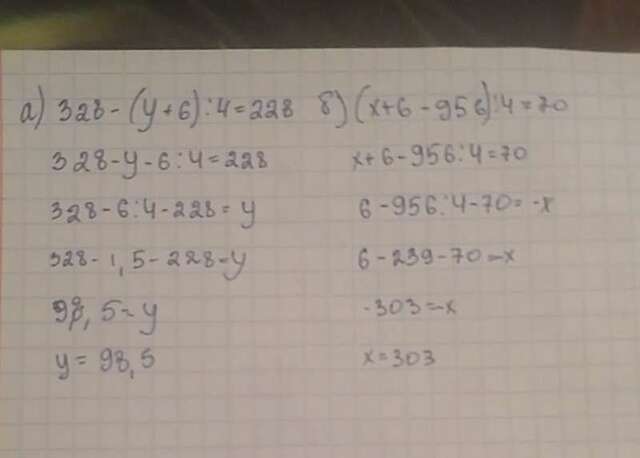 а) 328 - (y + 6) : 4 = 228 б) (x + 6 - 956) : 4 = 70
328 - y - 6 : 4 = 228 x + 6 - 956 : 4 = 70
328 - 6 : 4 - 228 = y 6 - 956 : 4 - 70 = -x
328 - 1,5 - 228 = y 6 - 239 - 70 = -x
98,5 = y -303 = -x
y = 98,5 x = 303